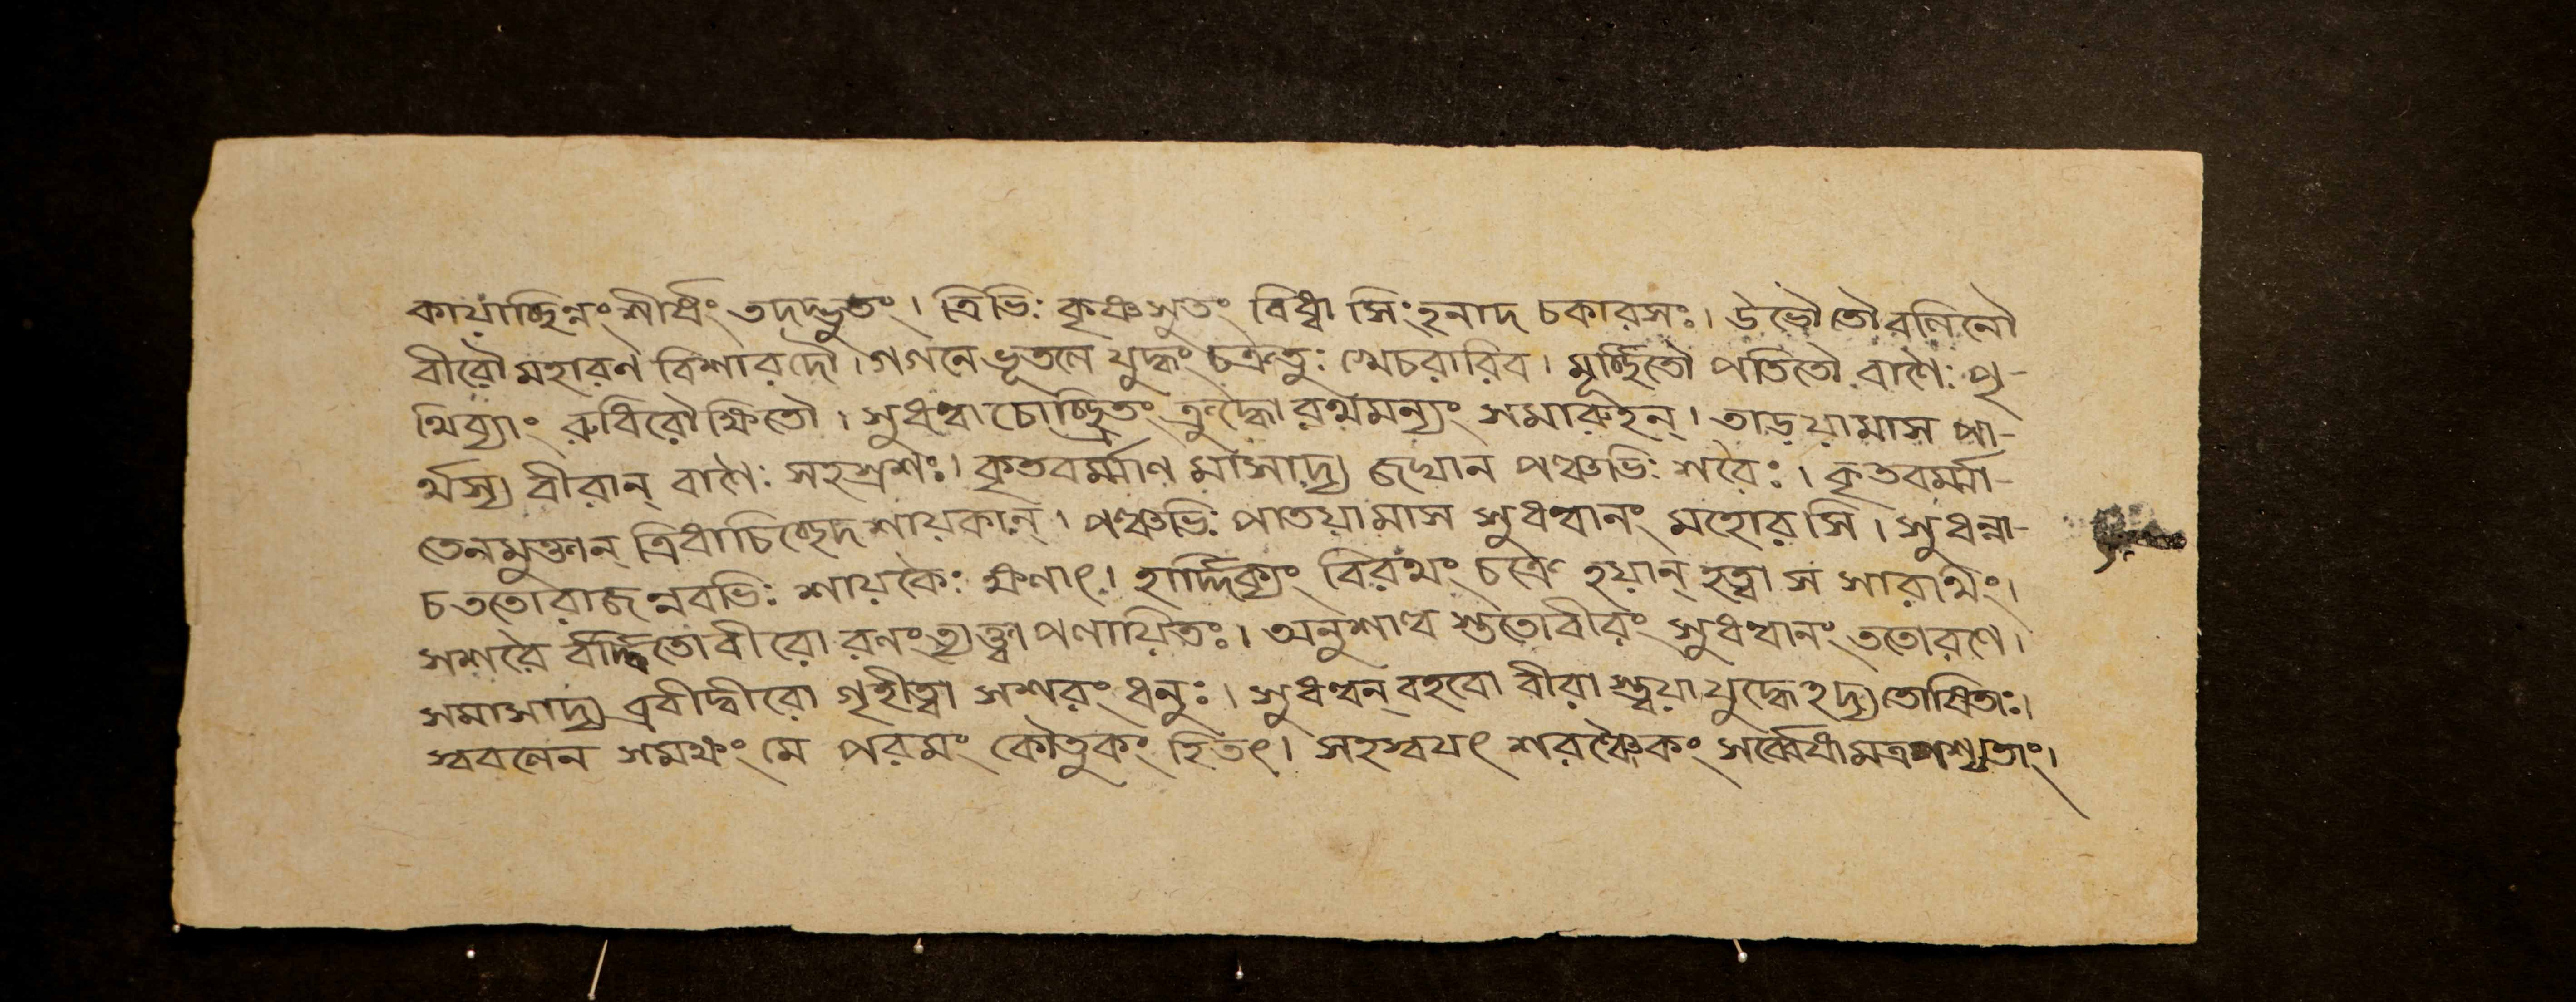 কায়াচ্ছিন্নং শীর্ষং তদদ্ভুতং। ত্রিভিঃ কৃষ্ণসুতং বিধ্বা সিংহনাদ চকারসঃ। উভৌ তৌ রণিনৌ
বীরৌ মহারণ বিশারদৌ। গগনে ভূতলে যুদ্ধং চক্রতুঃ খেচরারিব। মূর্চ্ছিতৌ পতিতৌ বাণৈঃ পৃ-
থিব্যাং রুধিরৌক্ষিতৌ। সুধন্বা চোচ্ছ্রিতং ক্রুদ্ধো রথমন্যং সমারুহন্। তাড়য়ামাস পা-
র্থস্য বীরান্ বাণৈঃ সহস্রশঃ। কৃতবর্ম্মাণ মাসাদ্য জঘান পঞ্চভিঃ শরৈঃ। কৃতবর্ম্মা-
তেনমুক্তান্ ত্রিধাচিচ্ছেদ শায়কান্। পঞ্চভিঃ পাতয়ামাস সুধন্বানং মহোরসি। সুধন্বা-
চ ততোরাজ ন্নবভিঃ শায়কৈঃ ক্ষণাৎ। হার্দ্দিক্যং বিরথং চক্রে হয়ান্ হত্বা স সারথিং।
সশরৈ র্বর্দ্ধিতোবীরো রণংত্যক্ত্বা পলায়িতঃ। অনুশাল্ব স্ততোবীরং সুধন্বানং ততোরণে।
সমাসাদ্য ব্রবীদ্বীরো গৃহীত্বা সশরং ধনুঃ। সুধন্বন্ বহবো বীরা স্ত্বয়া যুদ্ধেহদ্য তোষিতাঃ।
স্ববলেন সমক্ষং মে পরমং কৌতুকং হিতৎ। সহস্বযৎ শরঞ্চৈকং সর্ব্বেষামত্রপশ্যতাং।